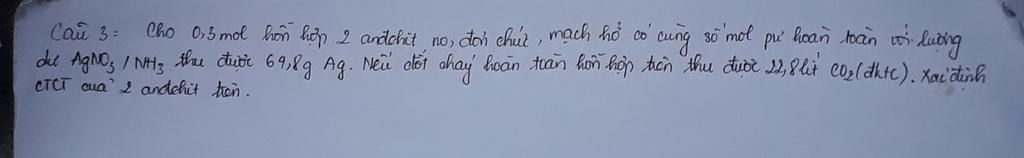 Câu 3: Cho 0,3 mol hỗn hợp 2 anđehit no, đơn chức, mạch hở có cùng số mol pư hoàn toàn với lượng
dư AgNO3 / NH3 thu được 64,8g Ag. Nếu đốt cháy hoàn toàn hỗn hợp trên thu được 22,8 lít CO2 (đktc). Xác định
CTCT của 2 anđehit trên.